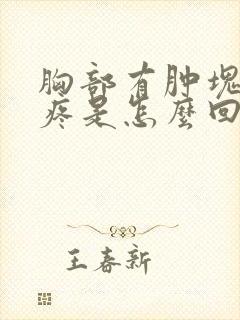 胸部有肿块
疼是怎麼回
王春新